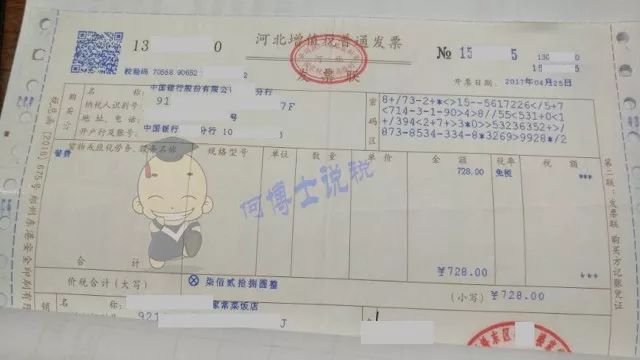 河北增值税普通发票
发票联
13 0
№ 15 5
校验码 70558 90652
开票日期: 2017年04月25日
名 称: 中国银行股份有限公 分行
纳税人识别号: 91 7F
地 址、电 话: 号
开户行及账号: 中国银行 分行 10
购买方
密码区
8+/73-2+*<>15--5617226</5+7
<714-3-1-90>4>8//55<531+0<1
+/394<2+7>3*0>>53236352+/
873-8534-334-8*3269>9928*/2
货物或应税劳务、服务名称 规格型号 单位 数 量 单 价 金 额 税率 税 额
餐费 728.00 免税 ***
何博士说税
合 计 ¥728.00 ***
价税合计(大写) ⊗ 柒佰贰拾捌圆整 (小写) ¥728.00
名 称: 家常菜饭店
销
921 J
第二联:发票联 购买方记账凭证